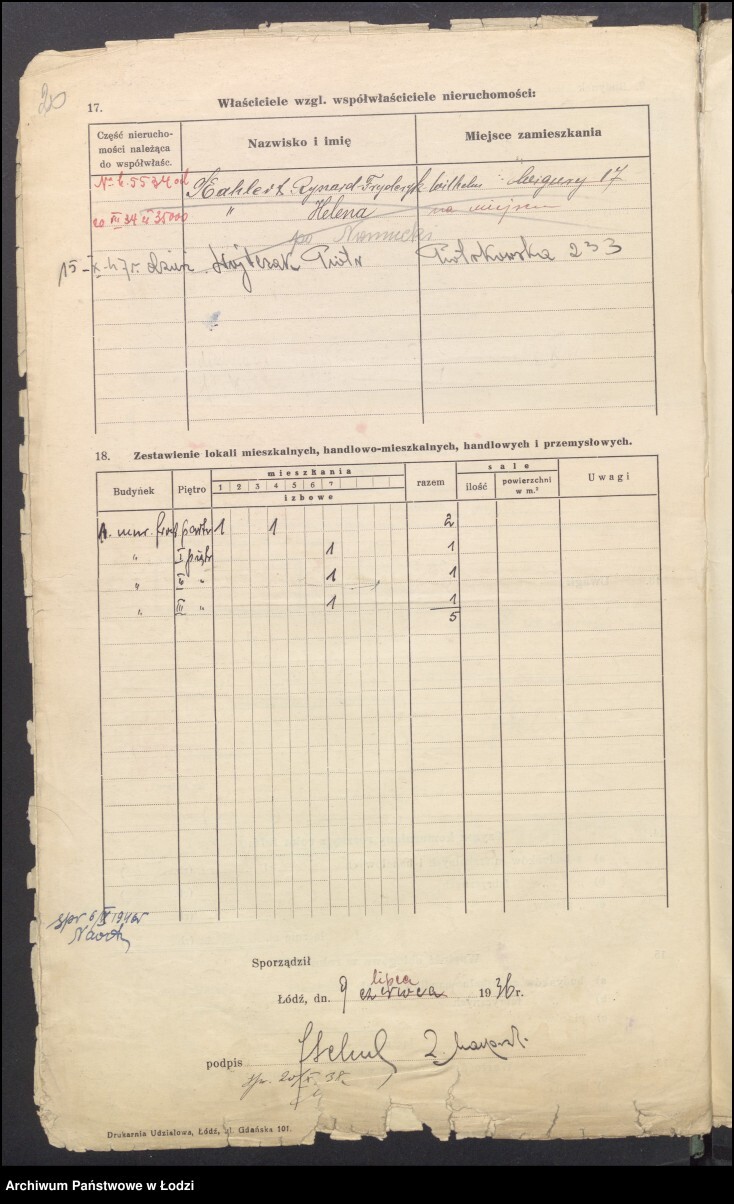 20
17. Właściciele wzgl. współwłaściciele nieruchomości:
Część nierucho-
mości należąca
do współwłaśc.
Nazwisko i imię
Miejsce zamieszkania
Kahlert Rynard-Fryderyk Wilhelm 17
" Helena na miejscu
20 III 34
po Niemiecki
15-X-47r. Wojtczak Piotr Piotrkowska 233
18. Zestawienie lokali mieszkalnych, handlowo-mieszkalnych, handlowych i przemysłowych.
Budynek Piętro mieszkania razem sale Uwagi
1 2 3 4 5 6 7
izbowe
ilość powierzchni
w m.²
front part 1 1 2
" I piętr 1 1
" II " 1 1
" III " 1 1
5
spr 6/X 1946r
Sporządził
lipca
Łódź, dn. 9 czerwca 1936 r.
podpis
spr. 20/X. 38r.
Drukarnia Udziałowa, Łódź, ul. Gdańska 101.
Archiwum Państwowe w Łodzi